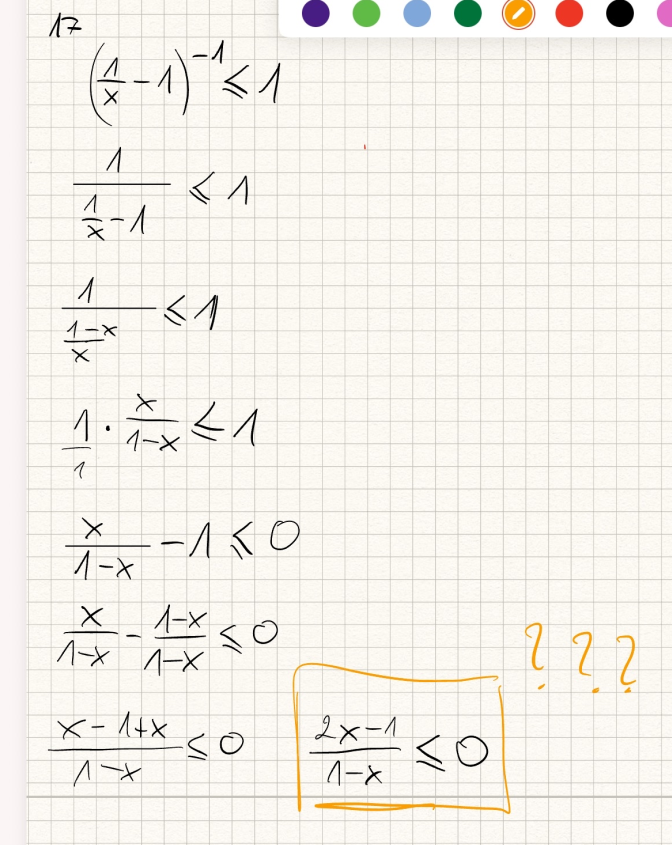 17
(1/x - 1)^-1 ≤ 1
1/(1/x - 1) ≤ 1
1/((1-x)/x) ≤ 1
1/1 · x/(1-x) ≤ 1
x/(1-x) - 1 ≤ 0
x/(1-x) - (1-x)/(1-x) ≤ 0
???
(x - 1 + x)/(1-x) ≤ 0 (2x-1)/(1-x) ≤ 0